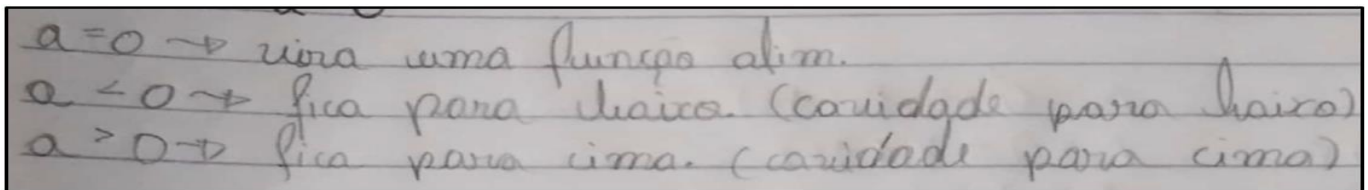 a = 0 → vira uma função afim.
a < 0 → fica para baixo. (cavidade para baixo)
a > 0 → fica para cima. (cavidade para cima)